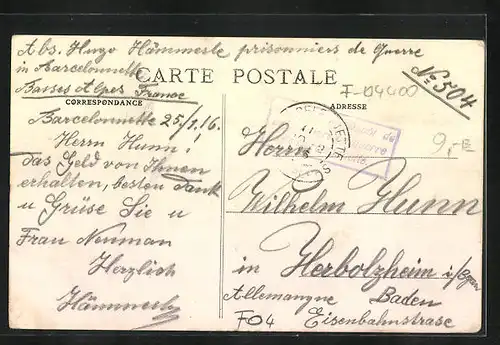 Abs. Hugo Hämmerle prisonniers de Guerre
in Barcelonnette
Basses Alpes France
No 504
CARTE POSTALE
F-04400
CORRESPONDANCE
ADRESSE
9,-E
Barcelonnette 25/1.16.
Herrn Hunn!
das Geld von Ihnen
erhalten, besten Dank
u Grüse Sie u
Frau
Herzlich
Hämmerle
Herrn
Wilhelm Hunn
in Herbolzheim i/
Allemangne Baden
Eisenbahnstrase
F04